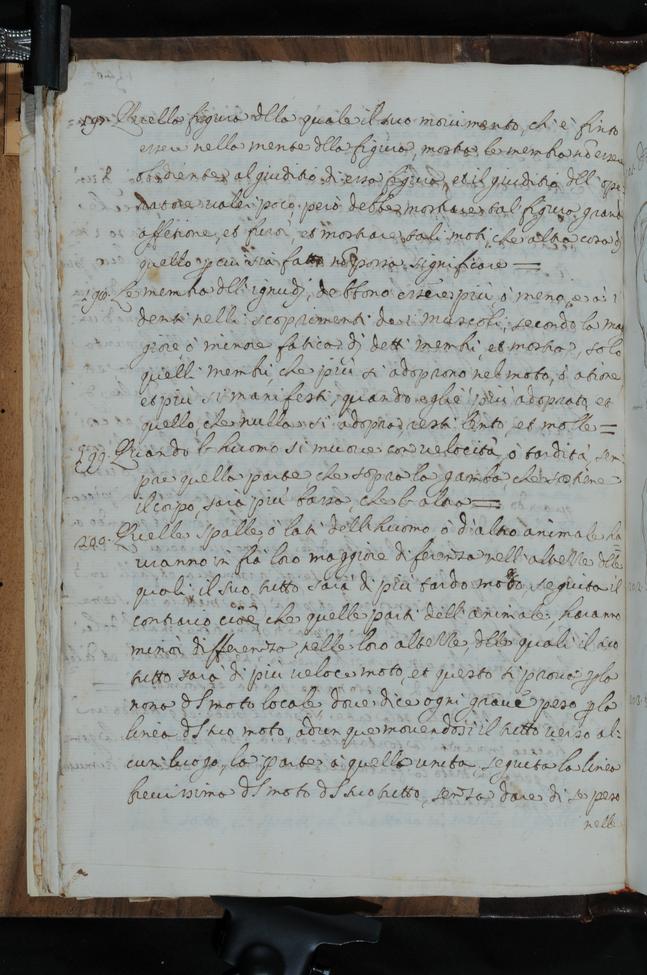 197. Quella figura della quale il suo movimento, ch' è finto
essere nella mente dlla figura, mostra le membra nō essere
obedienti al giuditio di essa figura, et il giuditio dll' ope
ratore valer poco, però debbe mostrare tal figura grand
affetione, et furor, et mostrare tali moti, che altra cosa dj
quello p cui sia fatta nō possa significare =
198. Le membra dlli ignudj, debbono essere più, ò meno, evi
denti nelli scoprimenti de i muscoli, secondo la mag
giore, ò minore fatica dj detti membri, et mostrar, solo
quelli membri, che più si adoprono nel moto, ò atione,
et più si manifesti, quando egli è più adoprato, et
quello, che nulla si adopra, resti lento, et molle =
199. Quando l'huomo si muove con velocità, ò tardità, sem
pre quella parte che sopra la gamba, che sostiene
il corpo, sarà più bassa, che l'altra =
200. Quelle spalle, ò lati dell'huomo, ò d'altro animale ha
vranno in fra loro maggiore diferenza nell'altezze dlle
quali il suo tutto sarà di più tardo moto, seguita il
contrario cioè, che quelle parti dell'animale, havranno
minor differenza, nelle loro altezze, dlle quali il suo
tutto sarà di più veloce moto, et questo si prova p la
nona dl moto locale, dove dice ogni grave pesa p la
linea dl suo moto, adunque movendosi il tutto verso al-
cun luogo, la parte à quella unita seguita la linea
brevissima dl moto dl suo tutto, senza dare di se peso
nelle